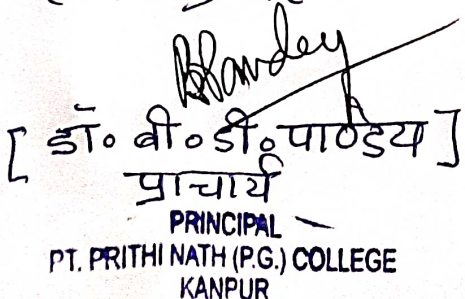 BPandey
[ डॉ० बी०डी० पाण्डेय ]
प्राचार्य
PRINCIPAL
PT. PRITHI NATH (P.G.) COLLEGE
KANPUR